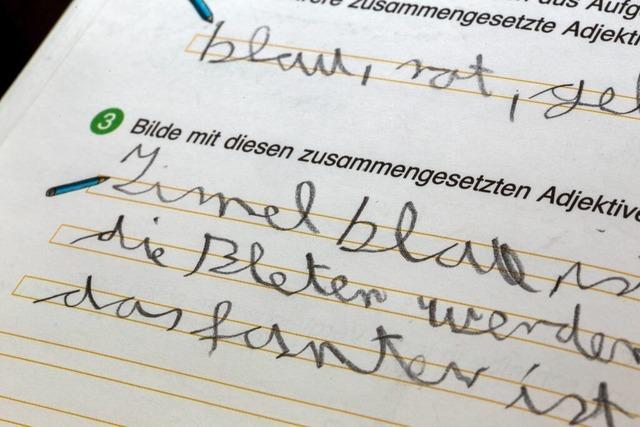 das Aufg
zusammengesetzte Adjekti
blau, rot, gel
3 Bilde mit diesen zusammengesetzten Adjektive
Himelblau is
die Bleter werden
das fanter ist